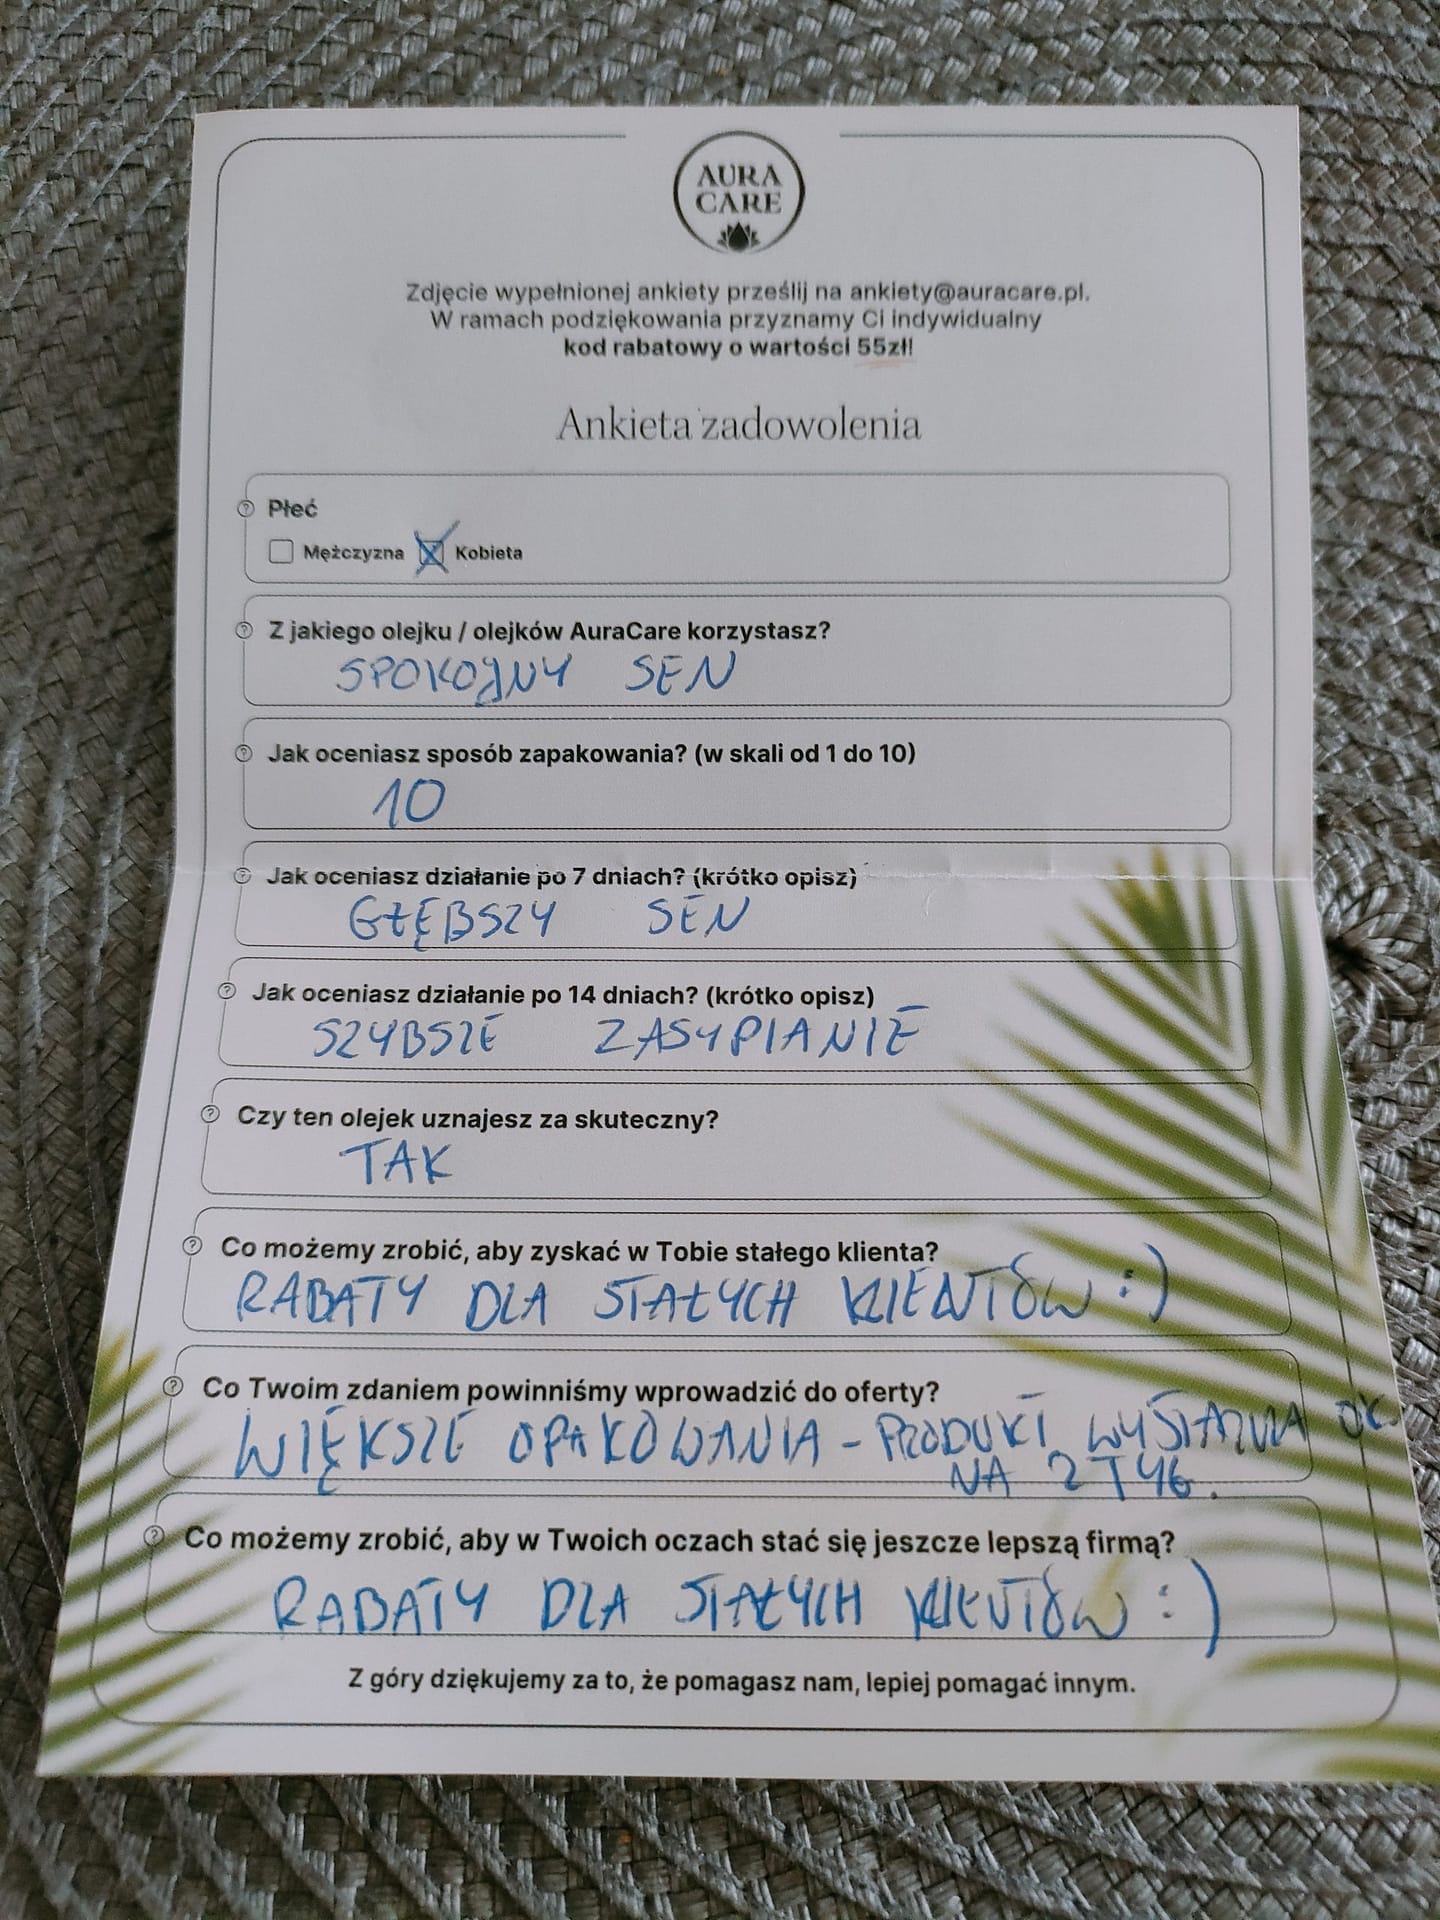 AURA
CARE
Zdjęcie wypełnionej ankiety prześlij na ankiety@auracare.pl.
W ramach podziękowania przyznamy Ci indywidualny
kod rabatowy o wartości 55zł!
Ankieta zadowolenia
Płeć
Mężczyzna Kobieta
Z jakiego olejku / olejków AuraCare korzystasz?
SPOKOJNY SEN
Jak oceniasz sposób zapakowania? (w skali od 1 do 10)
10
Jak oceniasz działanie po 7 dniach? (krótko opisz)
GŁĘBSZY SEN
Jak oceniasz działanie po 14 dniach? (krótko opisz)
SZYBSZE ZASYPIANIE
Czy ten olejek uznajesz za skuteczny?
TAK
Co możemy zrobić, aby zyskać w Tobie stałego klienta?
RABATY DLA STAŁYCH KLIENTÓW :)
Co Twoim zdaniem powinniśmy wprowadzić do oferty?
WIĘKSZE OPAKOWANIA - PRODUKT WYSTARCZA OK.
NA 2 TYG.
Co możemy zrobić, aby w Twoich oczach stać się jeszcze lepszą firmą?
RABATY DLA STAŁYCH KLIENTÓW :)
Z góry dziękujemy za to, że pomagasz nam, lepiej pomagać innym.